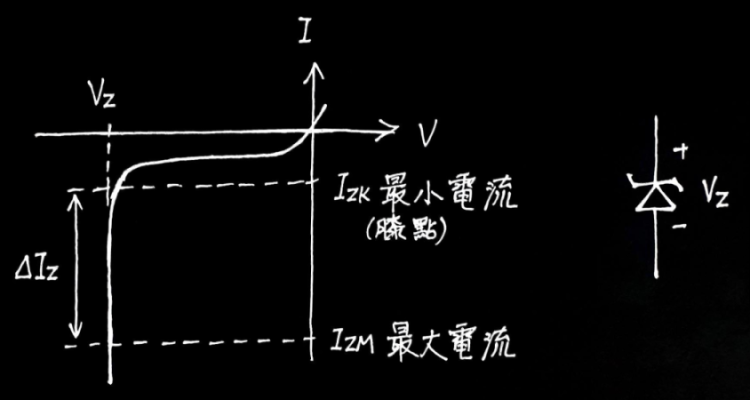 I
Vz
V
Izk 最小電流
(膝點)
ΔIz
IzM 最大電流
+
Vz
-